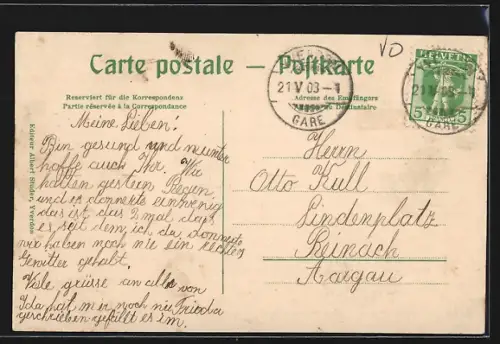 Carte postale — Postkarte
VD
Reserviert für die Korrespondenz
Partie réservée à la Correspondance
Adresse des Empfängers
21 V 08
GARE
HELVETIA
5 5
GARE
Editeur Albert Studer, Yverdon
Meine Lieben!
Bin gesund und munter
hoffe auch Ihr. Wir
hatten gestern Regen
und es donnerte ein wenig
das ist das 2 mal das
es seit dem ich da donnerte
wir haben noch nie ein rechtes
Gewitter gehabt.
Viele grüsse an alle von
Frieda
Ida hat mir noch nie
geschrieben gefällt es im.
Herrn
Otto Kull
Lindenplatz
Reinach
Aargau